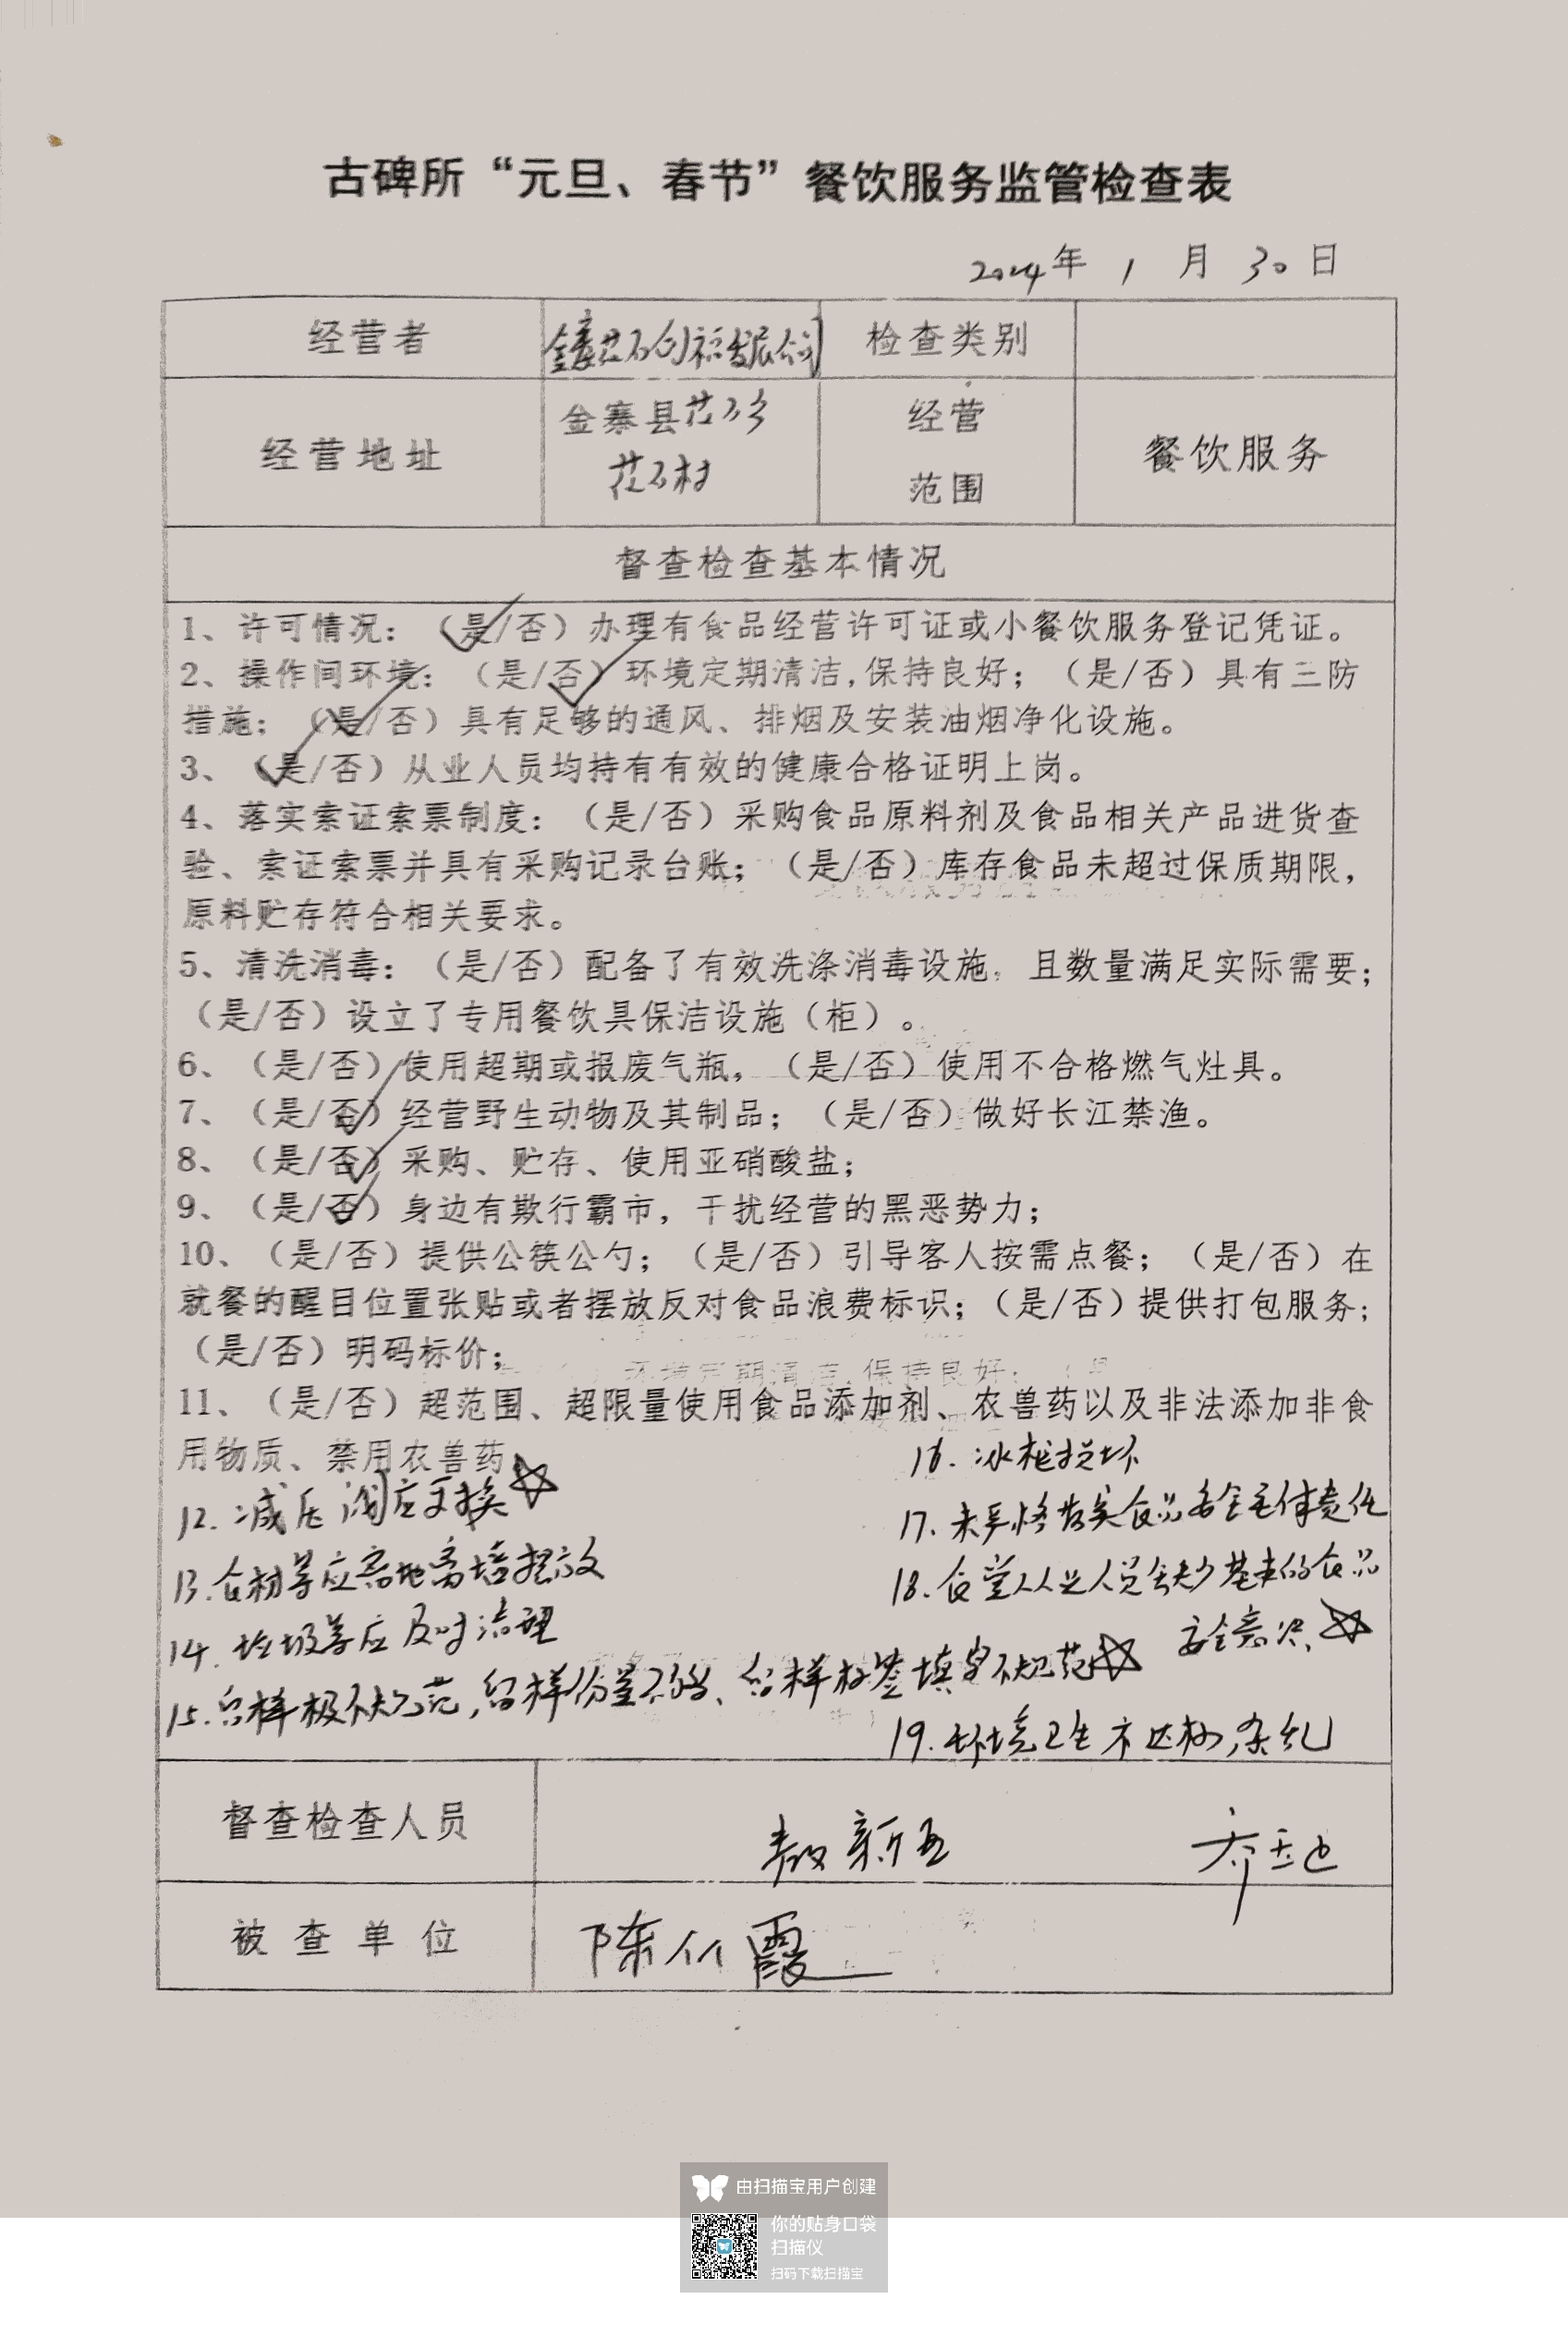 古碑所“元旦、春节”餐饮服务监管检查表
2024年 1 月 30 日
经营者
检查类别
经营地址
金寨县花石乡
花石村
经营
范围
餐饮服务
督查检查基本情况
1、许可情况：（是/否）办理有食品经营许可证或小餐饮服务登记凭证。
2、操作间环境：（是/否）环境定期清洁,保持良好；（是/否）具有三防
措施；（是/否）具有足够的通风、排烟及安装油烟净化设施。
3、（是/否）从业人员均持有有效的健康合格证明上岗。
4、落实索证索票制度：（是/否）采购食品原料剂及食品相关产品进货查
验、索证索票并具有采购记录台账；（是/否）库存食品未超过保质期限，
原料贮存符合相关要求。
5、清洗消毒：（是/否）配备了有效洗涤消毒设施，且数量满足实际需要；
（是/否）设立了专用餐饮具保洁设施（柜）。
6、（是/否）使用超期或报废气瓶，（是/否）使用不合格燃气灶具。
7、（是/否）经营野生动物及其制品；（是/否）做好长江禁渔。
8、（是/否）采购、贮存、使用亚硝酸盐；
9、（是/否）身边有欺行霸市，干扰经营的黑恶势力；
10、（是/否）提供公筷公勺；（是/否）引导客人按需点餐；（是/否）在
就餐的醒目位置张贴或者摆放反对食品浪费标识；（是/否）提供打包服务；
（是/否）明码标价；
11、（是/否）超范围、超限量使用食品添加剂、农兽药以及非法添加非食
用物质、禁用农兽药。
12. 减压阀应更换☆
13. 食材等应离地离墙摆放
14. 垃圾等应及时清理
15. 留样极不规范，留样份量不够、留样标签填写不规范☆
16. 冰柜损坏
17. 未严格落实食品安全主体责任
18. 食堂从业人员缺少基本的食品
安全意识☆
19. 环境卫生不达标，杂乱
督查检查人员
被查单位
由扫描宝用户创建
你的贴身口袋
扫描仪
扫码下载扫描宝